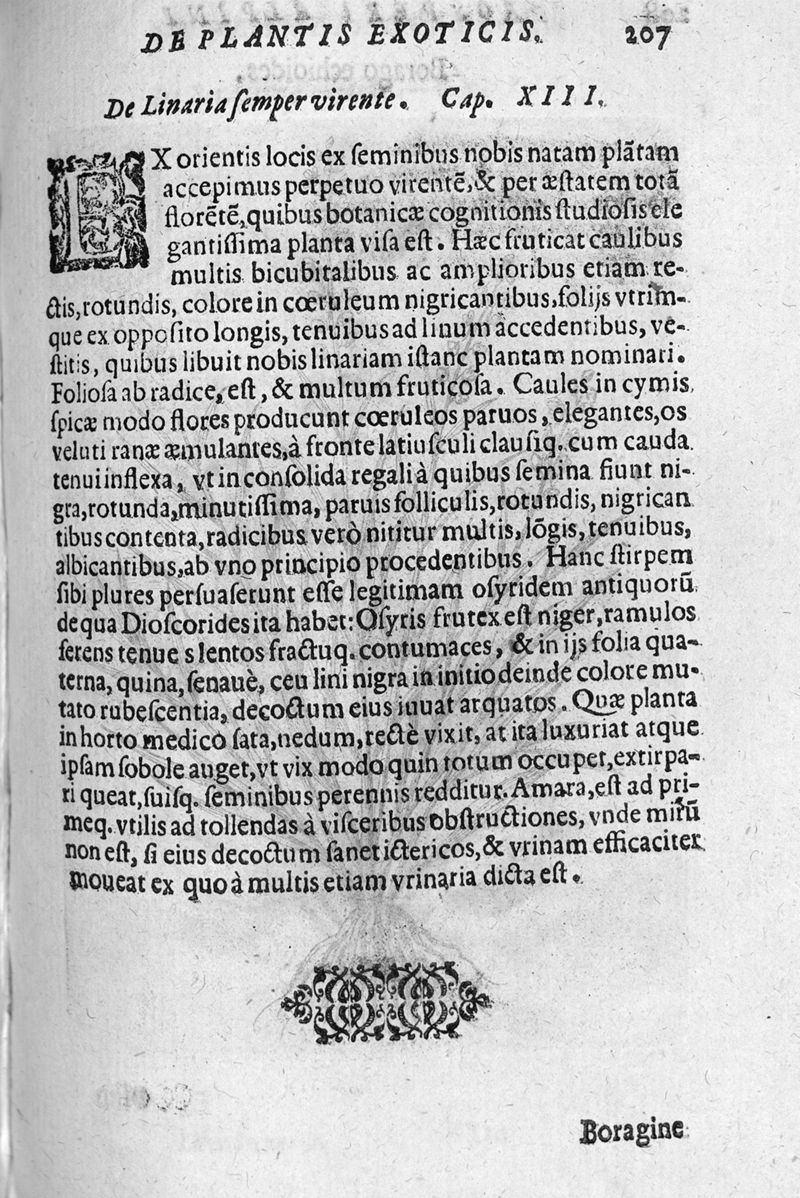 DE PLANTIS EXOTICIS. 207
De Linaria ſemper virente. Cap. XIII.
EX orientis locis ex ſeminibus nobis natam plãtam
accepimus perpetuo virentẽ, & per æſtatem totã
florẽtẽ, quibus botanicæ cognitionis ſtudioſis ele
gantiſſima planta viſa eſt. Hæc fruticat caulibus
multis bicubitalibus ac amplioribus etiam re-
ctis, rotundis, colore in cœruleum nigricantibus, folijs vtrim-
que ex oppoſito longis, tenuibus ad linum accedentibus, ve-
ſtitis, quibus libuit nobis linariam iſtanc plantam nominari.
Folioſa ab radice, eſt, & multum fruticoſa. Caules in cymis
ſpicæ modo flores producunt cœruleos paruos, elegantes, os
veluti ranæ æmulantes, à fronte latiuſculi clauſiq. cum cauda
tenui inflexa, vt in conſolida regali à quibus ſemina fiunt ni-
gra, rotunda, minutiſſima, paruis folliculis, rotundis, nigrican
tibus contenta, radicibus verò nititur multis, lõgis, tenuibus,
albicantibus, ab vno principio procedentibus. Hanc ſtirpem
ſibi plures perſuaſerunt eſſe legitimam oſyridem antiquorũ
de qua Dioſcorides ita habet: Oſyris frutex eſt niger, ramulos
ferens tenue s lentos fractuq. contumaces, & in ijs folia qua-
terna, quina, ſenauè, ceu lini nigra in initio deinde colore mu-
tato rubeſcentia, decoctum eius iuuat arquatos. Quæ planta
in horto medico ſata, nedum, rectè vixit, at ita luxuriat atque
ipſam ſobole auget, vt vix modo quin totum occupet, extirpa-
ri queat, ſuiſq. ſeminibus perennis redditur. Amara, eſt ad pri-
meq. vtilis ad tollendas à viſceribus obſtructiones, vnde mirũ
non eſt, ſi eius decoctum ſanet ictericos, & vrinam efficaciter
moueat ex quo à multis etiam vrinaria dicta eſt.
Boragine